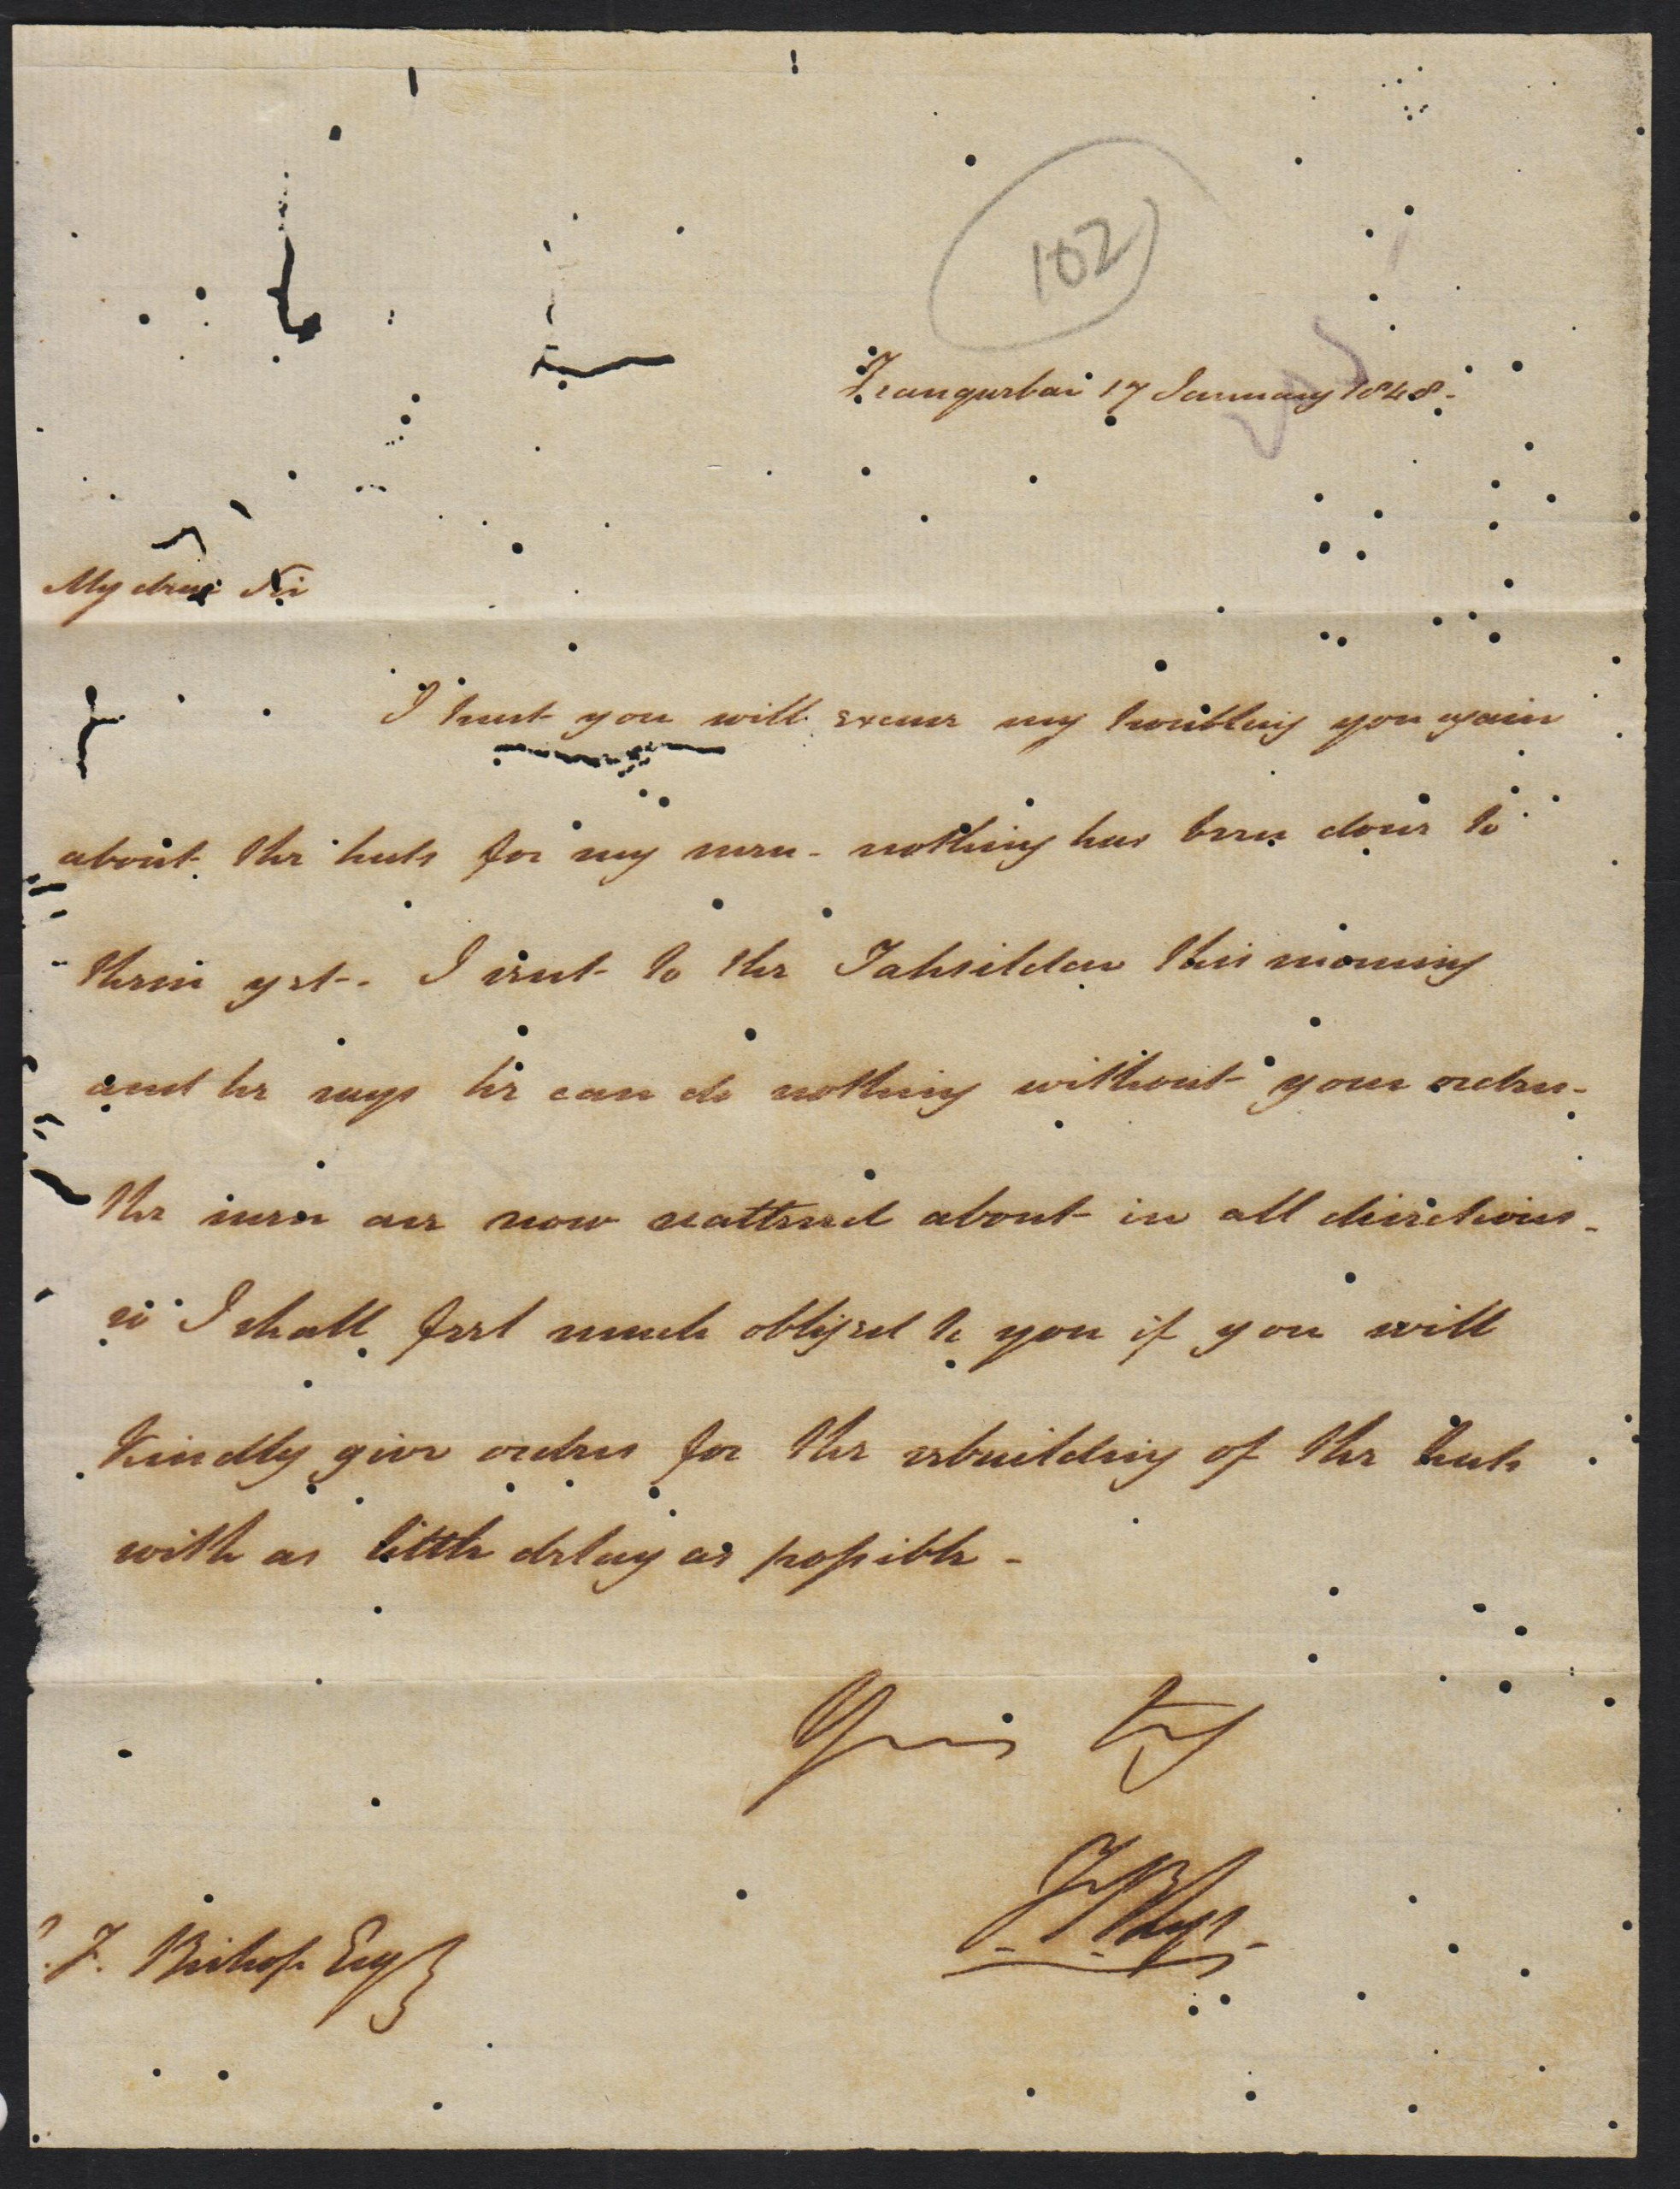 102
Tranquebar 17 January 1848.
My dear Sir
I trust you will excuse my troubling you again
about the huts for my men - nothing has been done to
them yet - I sent to the Tahsildar this morning
and he says he can do nothing without your orders -
the men are now scattered about in all directions -
so I shall feel much obliged to you if you will
kindly give orders for the rebuilding of the huts
with as little delay as possible -
Yours truly
F. Bishop Esq